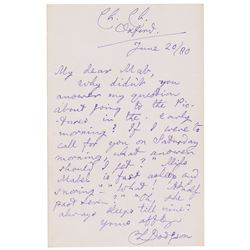 Ch. Ch.
Oxford.
June 20/80
My dear Mab,
Why didn't you
answer my question
about going to the Pic-
tures in the early
morning? If I were to
call for you on Saturday
morning, what answer
should I get? "Miss
Mabel is fast asleep and
snoring" "What! At half
past seven?" "Oh, she
always sleeps till nine."
yours affly
CLDodgson